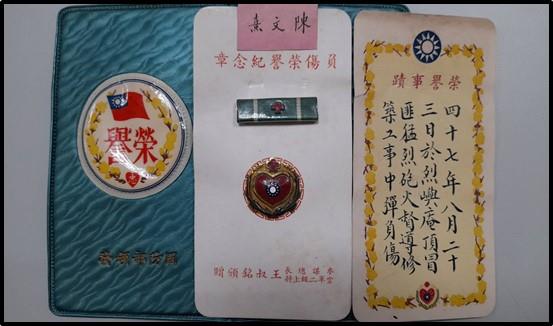 榮譽
陳文熹
負傷榮譽紀念章
參謀總長
空軍二級上將
王叔銘頒贈
榮譽事蹟
四十七年八月二十
三日於烈嶼庵頂冒
匪猛烈砲火督導修
築工事中彈負傷